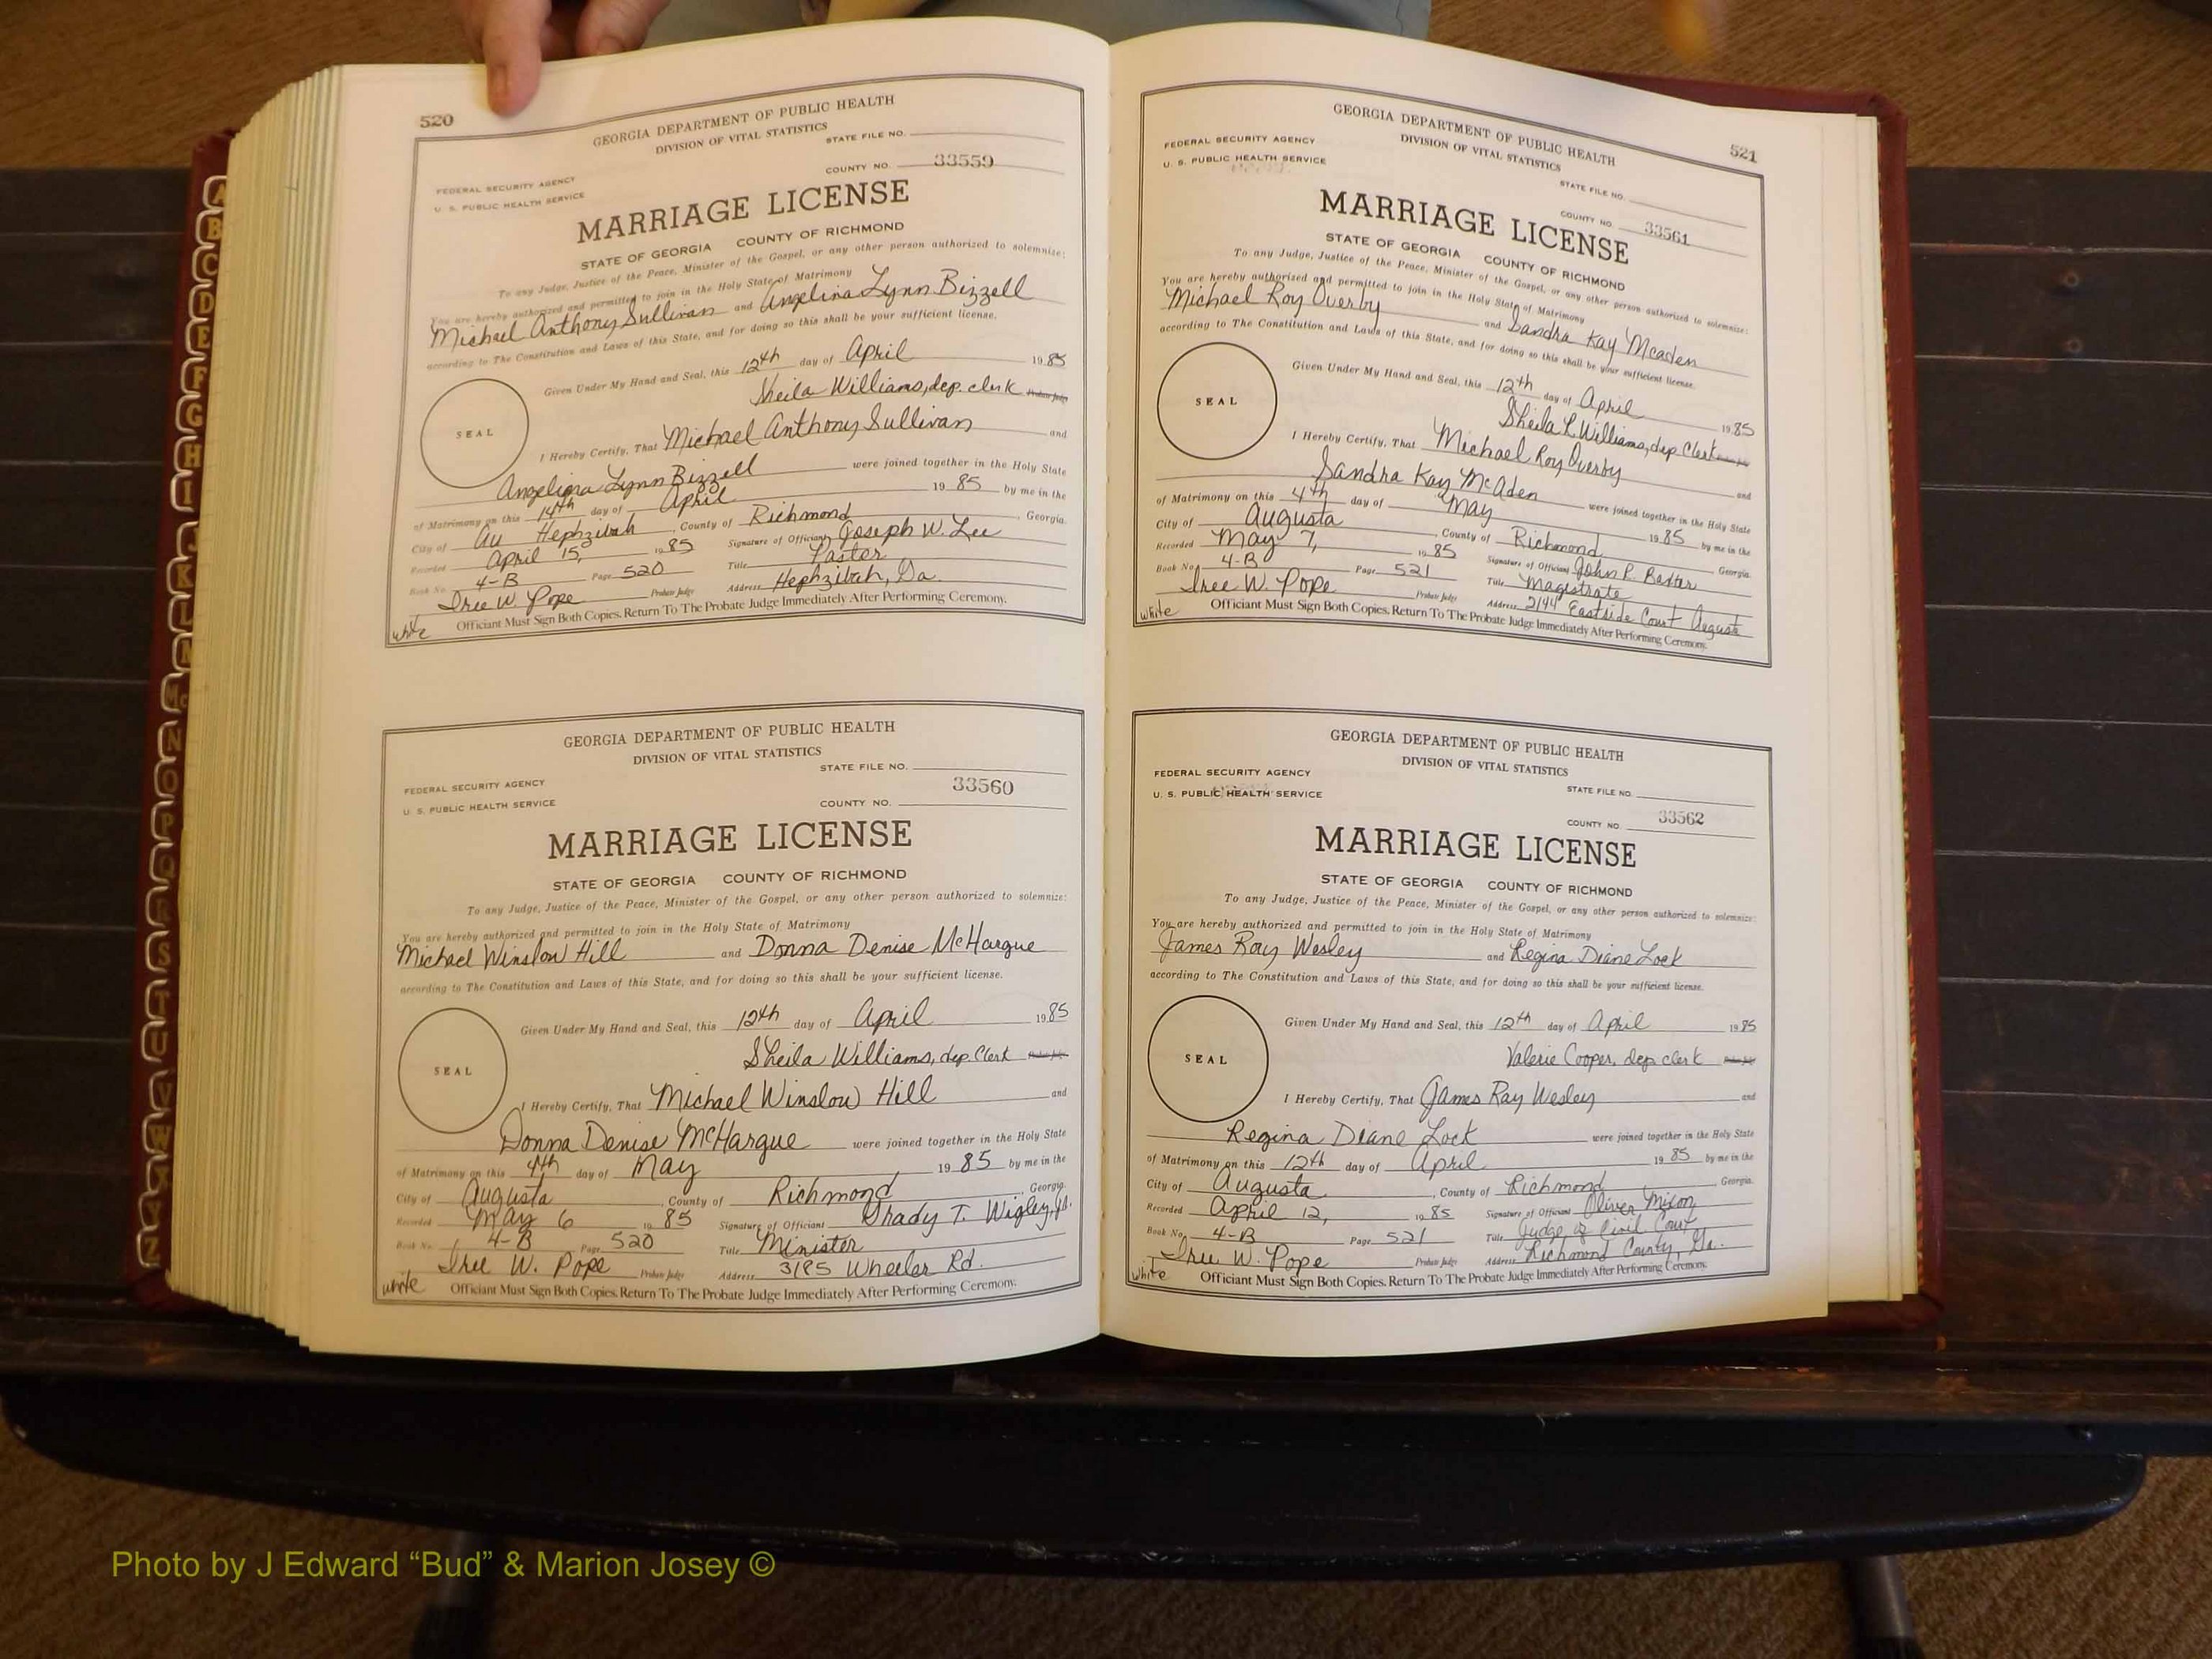 520
GEORGIA DEPARTMENT OF PUBLIC HEALTH
DIVISION OF VITAL STATISTICS
STATE FILE NO.
FEDERAL SECURITY AGENCY
U. S. PUBLIC HEALTH SERVICE
COUNTY NO. 33559
MARRIAGE LICENSE
STATE OF GEORGIA COUNTY OF RICHMOND
To any Judge, Justice of the Peace, Minister of the Gospel, or any other person authorized to solemnize:
You are hereby authorized and permitted to join in the Holy State of Matrimony
Michael Anthony Sullivan and Angelina Lynn Bizzell
according to The Constitution and Laws of this State, and for doing so this shall be your sufficient license.
Given Under My Hand and Seal, this 12th day of April 1985
Sheila Williams, dep. clerk Probate Judge
SEAL
I Hereby Certify, That Michael Anthony Sullivan and
Angelina Lynn Bizzell were joined together in the Holy State
of Matrimony on this 14th day of April 1985 by me in the
City of Au Hephzibah, County of Richmond, Georgia.
Recorded April 15, 1985 Signature of Officiant Joseph W. Lee
Book No. 4-B Page 520 Title Pastor
Iree W. Pope Probate Judge Address Hephzibah, Ga.
white Officiant Must Sign Both Copies. Return To The Probate Judge Immediately After Performing Ceremony.
GEORGIA DEPARTMENT OF PUBLIC HEALTH
DIVISION OF VITAL STATISTICS
STATE FILE NO.
FEDERAL SECURITY AGENCY
U. S. PUBLIC HEALTH SERVICE
COUNTY NO. 33560
MARRIAGE LICENSE
STATE OF GEORGIA COUNTY OF RICHMOND
To any Judge, Justice of the Peace, Minister of the Gospel, or any other person authorized to solemnize:
You are hereby authorized and permitted to join in the Holy State of Matrimony
Michael Winslow Hill and Donna Denise McHargue
according to The Constitution and Laws of this State, and for doing so this shall be your sufficient license.
Given Under My Hand and Seal, this 12th day of April 1985
Sheila Williams, dep. Clerk Probate Judge
SEAL
I Hereby Certify, That Michael Winslow Hill and
Donna Denise McHargue were joined together in the Holy State
of Matrimony on this 4th day of May 1985 by me in the
City of Augusta, County of Richmond, Georgia.
Recorded May 6 1985 Signature of Officiant Grady T. Wigley, Jr.
Book No. 4-B Page 520 Title Minister
Iree W. Pope Probate Judge Address 3185 Wheeler Rd.
white Officiant Must Sign Both Copies. Return To The Probate Judge Immediately After Performing Ceremony.
521
GEORGIA DEPARTMENT OF PUBLIC HEALTH
DIVISION OF VITAL STATISTICS
FEDERAL SECURITY AGENCY
U. S. PUBLIC HEALTH SERVICE
STATE FILE NO.
COUNTY NO. 33561
MARRIAGE LICENSE
STATE OF GEORGIA COUNTY OF RICHMOND
To any Judge, Justice of the Peace, Minister of the Gospel, or any other person authorized to solemnize:
You are hereby authorized and permitted to join in the Holy State of Matrimony
Michael Roy Overby and Sandra Kay Mcaden
according to The Constitution and Laws of this State, and for doing so this shall be your sufficient license.
Given Under My Hand and Seal, this 12th day of April 1985
Sheila R Williams, dep Clerk Probate Judge
SEAL
I Hereby Certify, That Michael Roy Overby and
Sandra Kay McAden were joined together in the Holy State
of Matrimony on this 4th day of May 1985 by me in the
City of Augusta, County of Richmond, Georgia.
Recorded May 7, 1985 Signature of Officiant John R. Baxter
Book No. 4-B Page 521 Title Magistrate
Iree W. Pope Probate Judge Address 2144 Eastside Court Augusta
white Officiant Must Sign Both Copies. Return To The Probate Judge Immediately After Performing Ceremony.
GEORGIA DEPARTMENT OF PUBLIC HEALTH
DIVISION OF VITAL STATISTICS
FEDERAL SECURITY AGENCY
U. S. PUBLIC HEALTH SERVICE
STATE FILE NO.
COUNTY NO. 33562
MARRIAGE LICENSE
STATE OF GEORGIA COUNTY OF RICHMOND
To any Judge, Justice of the Peace, Minister of the Gospel, or any other person authorized to solemnize:
You are hereby authorized and permitted to join in the Holy State of Matrimony
James Ray Wesley and Regina Diane Lock
according to The Constitution and Laws of this State, and for doing so this shall be your sufficient license.
Given Under My Hand and Seal, this 12th day of April 1985
Valerie Cooper, dep clerk Probate Judge
SEAL
I Hereby Certify, That James Ray Wesley and
Regina Diane Lock were joined together in the Holy State
of Matrimony on this 12th day of April 1985 by me in the
City of Augusta, County of Richmond, Georgia.
Recorded April 12, 1985 Signature of Officiant Oliver Mixon
Book No. 4-B Page 521 Title Judge of Civil Court
Iree W. Pope Probate Judge Address Richmond County, Ga.
white Officiant Must Sign Both Copies. Return To The Probate Judge Immediately After Performing Ceremony.
Photo by J Edward “Bud” & Marion Josey ©